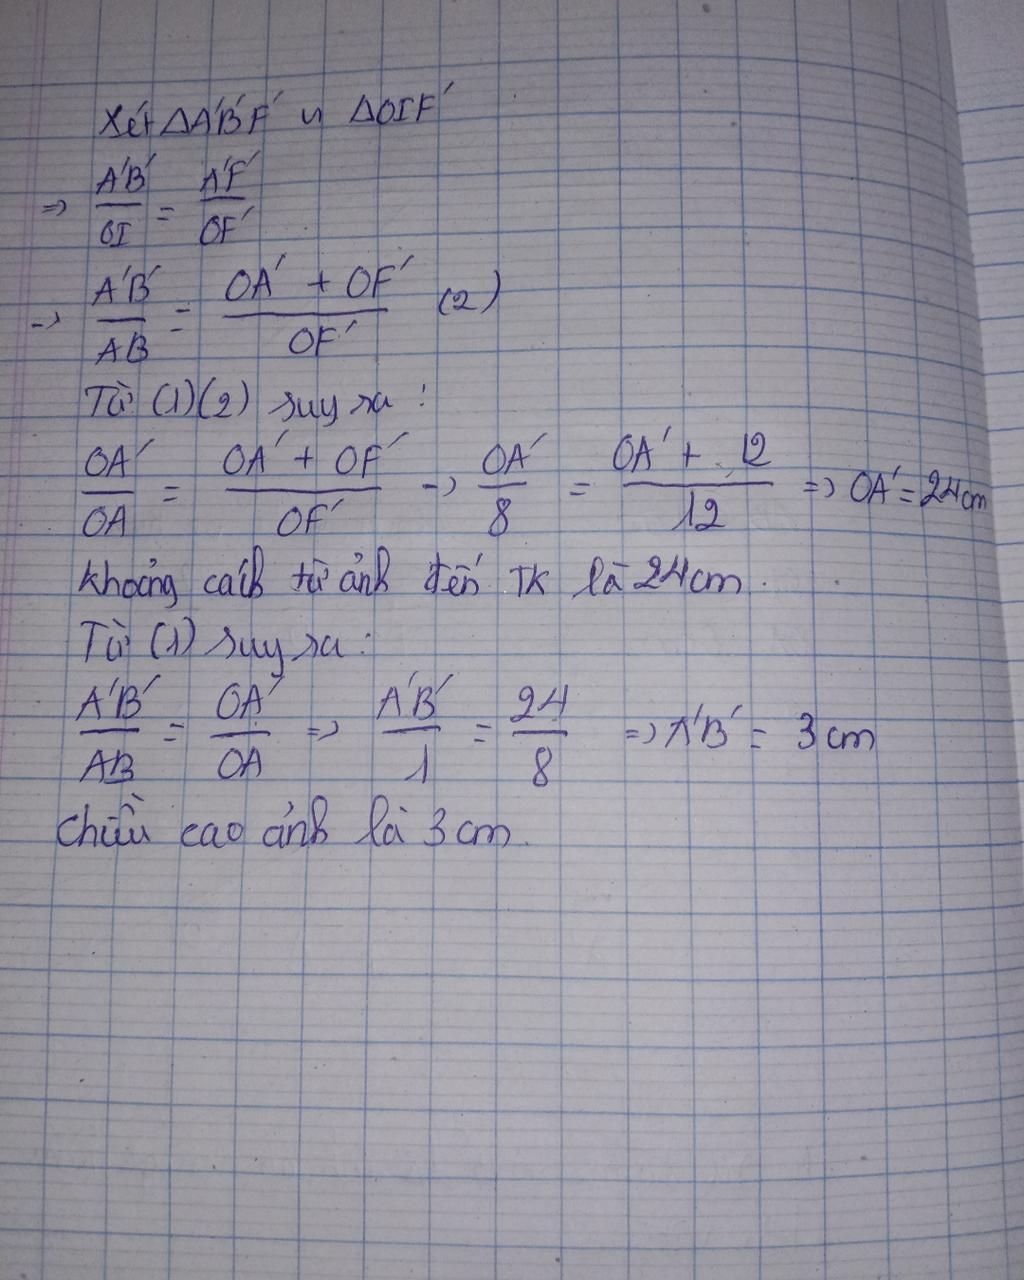 Xét ΔA'B'F' ∽ ΔOIF'
=> A'B'/OI = A'F'/OF'
-> A'B'/AB = (OA' + OF')/OF' (2)
Từ (1)(2) suy ra :
OA'/OA = (OA' + OF')/OF' -> OA'/8 = (OA' + 12)/12 => OA' = 24cm
Khoảng cách từ ảnh đến TK là 24cm.
Từ (1) suy ra :
A'B'/AB = OA'/OA => A'B'/1 = 24/8 => A'B' = 3cm
Chiều cao ảnh là 3cm.